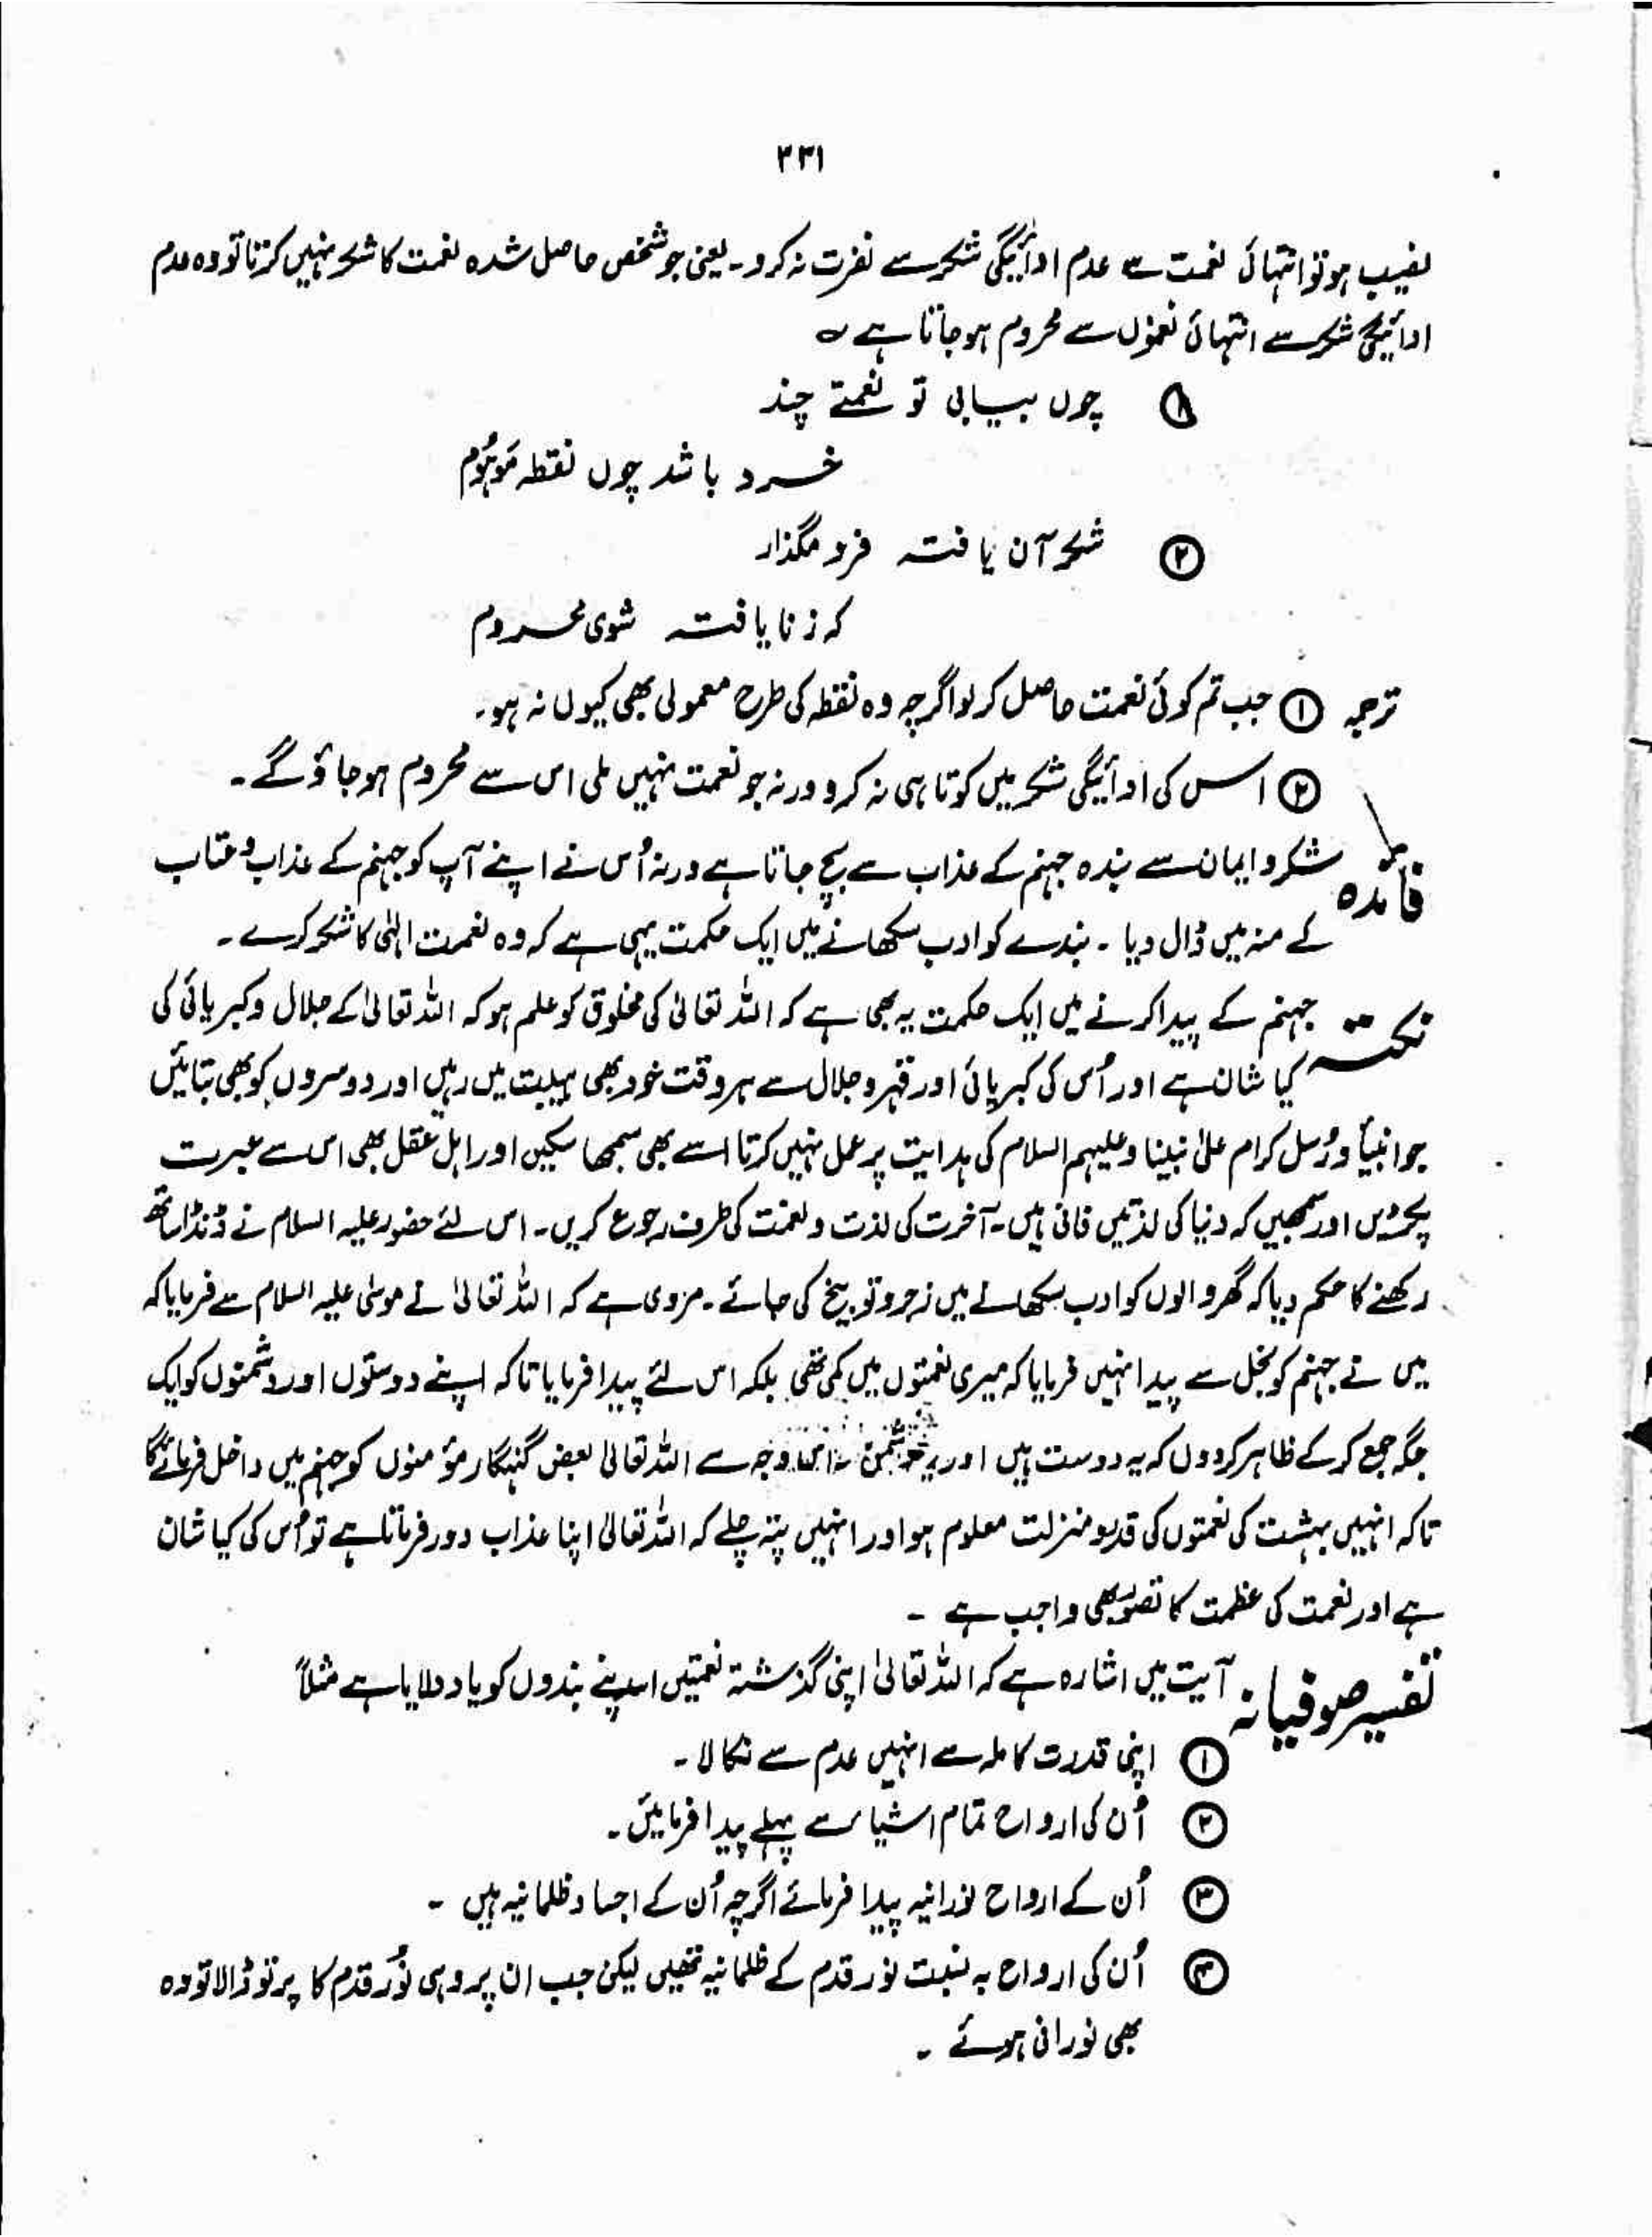 ۳۳۱
نصیب ہو تو انتہائی نعمت سے عدم ادائیگی شکر سے نفرت نہ کرو۔ یعنی جو شخص حاصل شدہ نعمت کا شکر نہیں کرتا تو وہ عدم
ادائیگی شکر سے انتہائی نعمتوں سے محروم ہو جاتا ہے ؎
① چوں بیابی تو نعمتے چند
خرد باشد چوں نقطہ مَوہُوم
② شکر آن یافتہ فرو مگذار
کہ ز نا یافتہ شوی محروم
ترجمہ ① جب تم کوئی نعمت حاصل کر لو اگرچہ وہ نقطہ کی طرح معمولی بھی کیوں نہ ہو۔
② اس کی ادائیگی شکر میں کوتاہی نہ کرو ورنہ جو نعمت نہیں ملی اس سے محروم ہو جاؤ گے۔
فائدہ شکر و ایمان سے بندہ جہنم کے عذاب سے بچ جاتا ہے ورنہ اُس نے اپنے آپ کو جہنم کے عذاب و عتاب
کے منہ میں ڈال دیا۔ بندے کو ادب سکھانے میں ایک حکمت یہی ہے کہ وہ نعمت الٰہی کا شکر کرے۔
نکتہ جہنم کے پیدا کرنے میں ایک حکمت یہ بھی ہے کہ اللہ تعالیٰ کی مخلوق کو علم ہو کہ اللہ تعالیٰ کے جلال و کبریائی کی
کیا شان ہے اور اُس کی کبریائی اور قہر و جلال سے ہر وقت خود بھی ہیبت میں رہیں اور دوسروں کو بھی بتائیں
جو انبیأ و رُسل کرام علیٰ نبینا وعلیہم السلام کی ہدایت پر عمل نہیں کرتا اسے بھی سمجھا سکیں اور اہل عقل بھی اس سے عبرت
پکڑیں اور سمجھیں کہ دنیا کی لذتیں فانی ہیں۔ آخرت کی لذت و نعمت کی طرف رجوع کریں۔ اس لئے حضور علیہ السلام نے ڈنڈا ساتھ
رکھنے کا حکم دیا کہ گھر والوں کو ادب سکھانے میں زجر و توبیخ کی جائے۔ مروی ہے کہ اللہ تعالیٰ نے موسٰی علیہ السلام سے فرمایا کہ
میں نے جہنم کو بخل سے پیدا نہیں فرمایا کہ میری نعمتوں میں کمی تھی بلکہ اس لئے پیدا فرمایا تاکہ اپنے دوستوں اور دشمنوں کو ایک
جگہ جمع کر کے ظاہر کر دوں کہ یہ دوست ہیں اور یہ دشمن اسی وجہ سے اللہ تعالیٰ بعض گنہگار مؤمنوں کو جہنم میں داخل فرمائے گا
تاکہ انہیں بہشت کی نعمتوں کی قدر و منزلت معلوم ہو اور انہیں پتہ چلے کہ اللہ تعالیٰ اپنا عذاب دور فرماتا ہے تو اُس کی کیا شان
ہے اور نعمت کی عظمت کا تصوّر بھی واجب ہے ۔
تفسیر صوفیانہ آیت میں اشارہ ہے کہ اللہ تعالیٰ اپنی گذشتہ نعمتیں اپنے بندوں کو یاد دلایا ہے مثلاً
① اپنی قدرت کاملہ سے انہیں عدم سے نکالا۔
② اُن کی ارواح تمام اشیاء سے پہلے پیدا فرمائیں۔
③ اُن کے ارواح نورانیہ پیدا فرمائے اگرچہ اُن کے اجساد ظلمانیہ ہیں ۔
④ اُن کی ارواح بہ نسبت نور قدم کے ظلمانیہ تھیں لیکن جب ان پر وہی نُور قدم کا پرتو ڈالا تو وہ
بھی نورانی ہوئے ۔